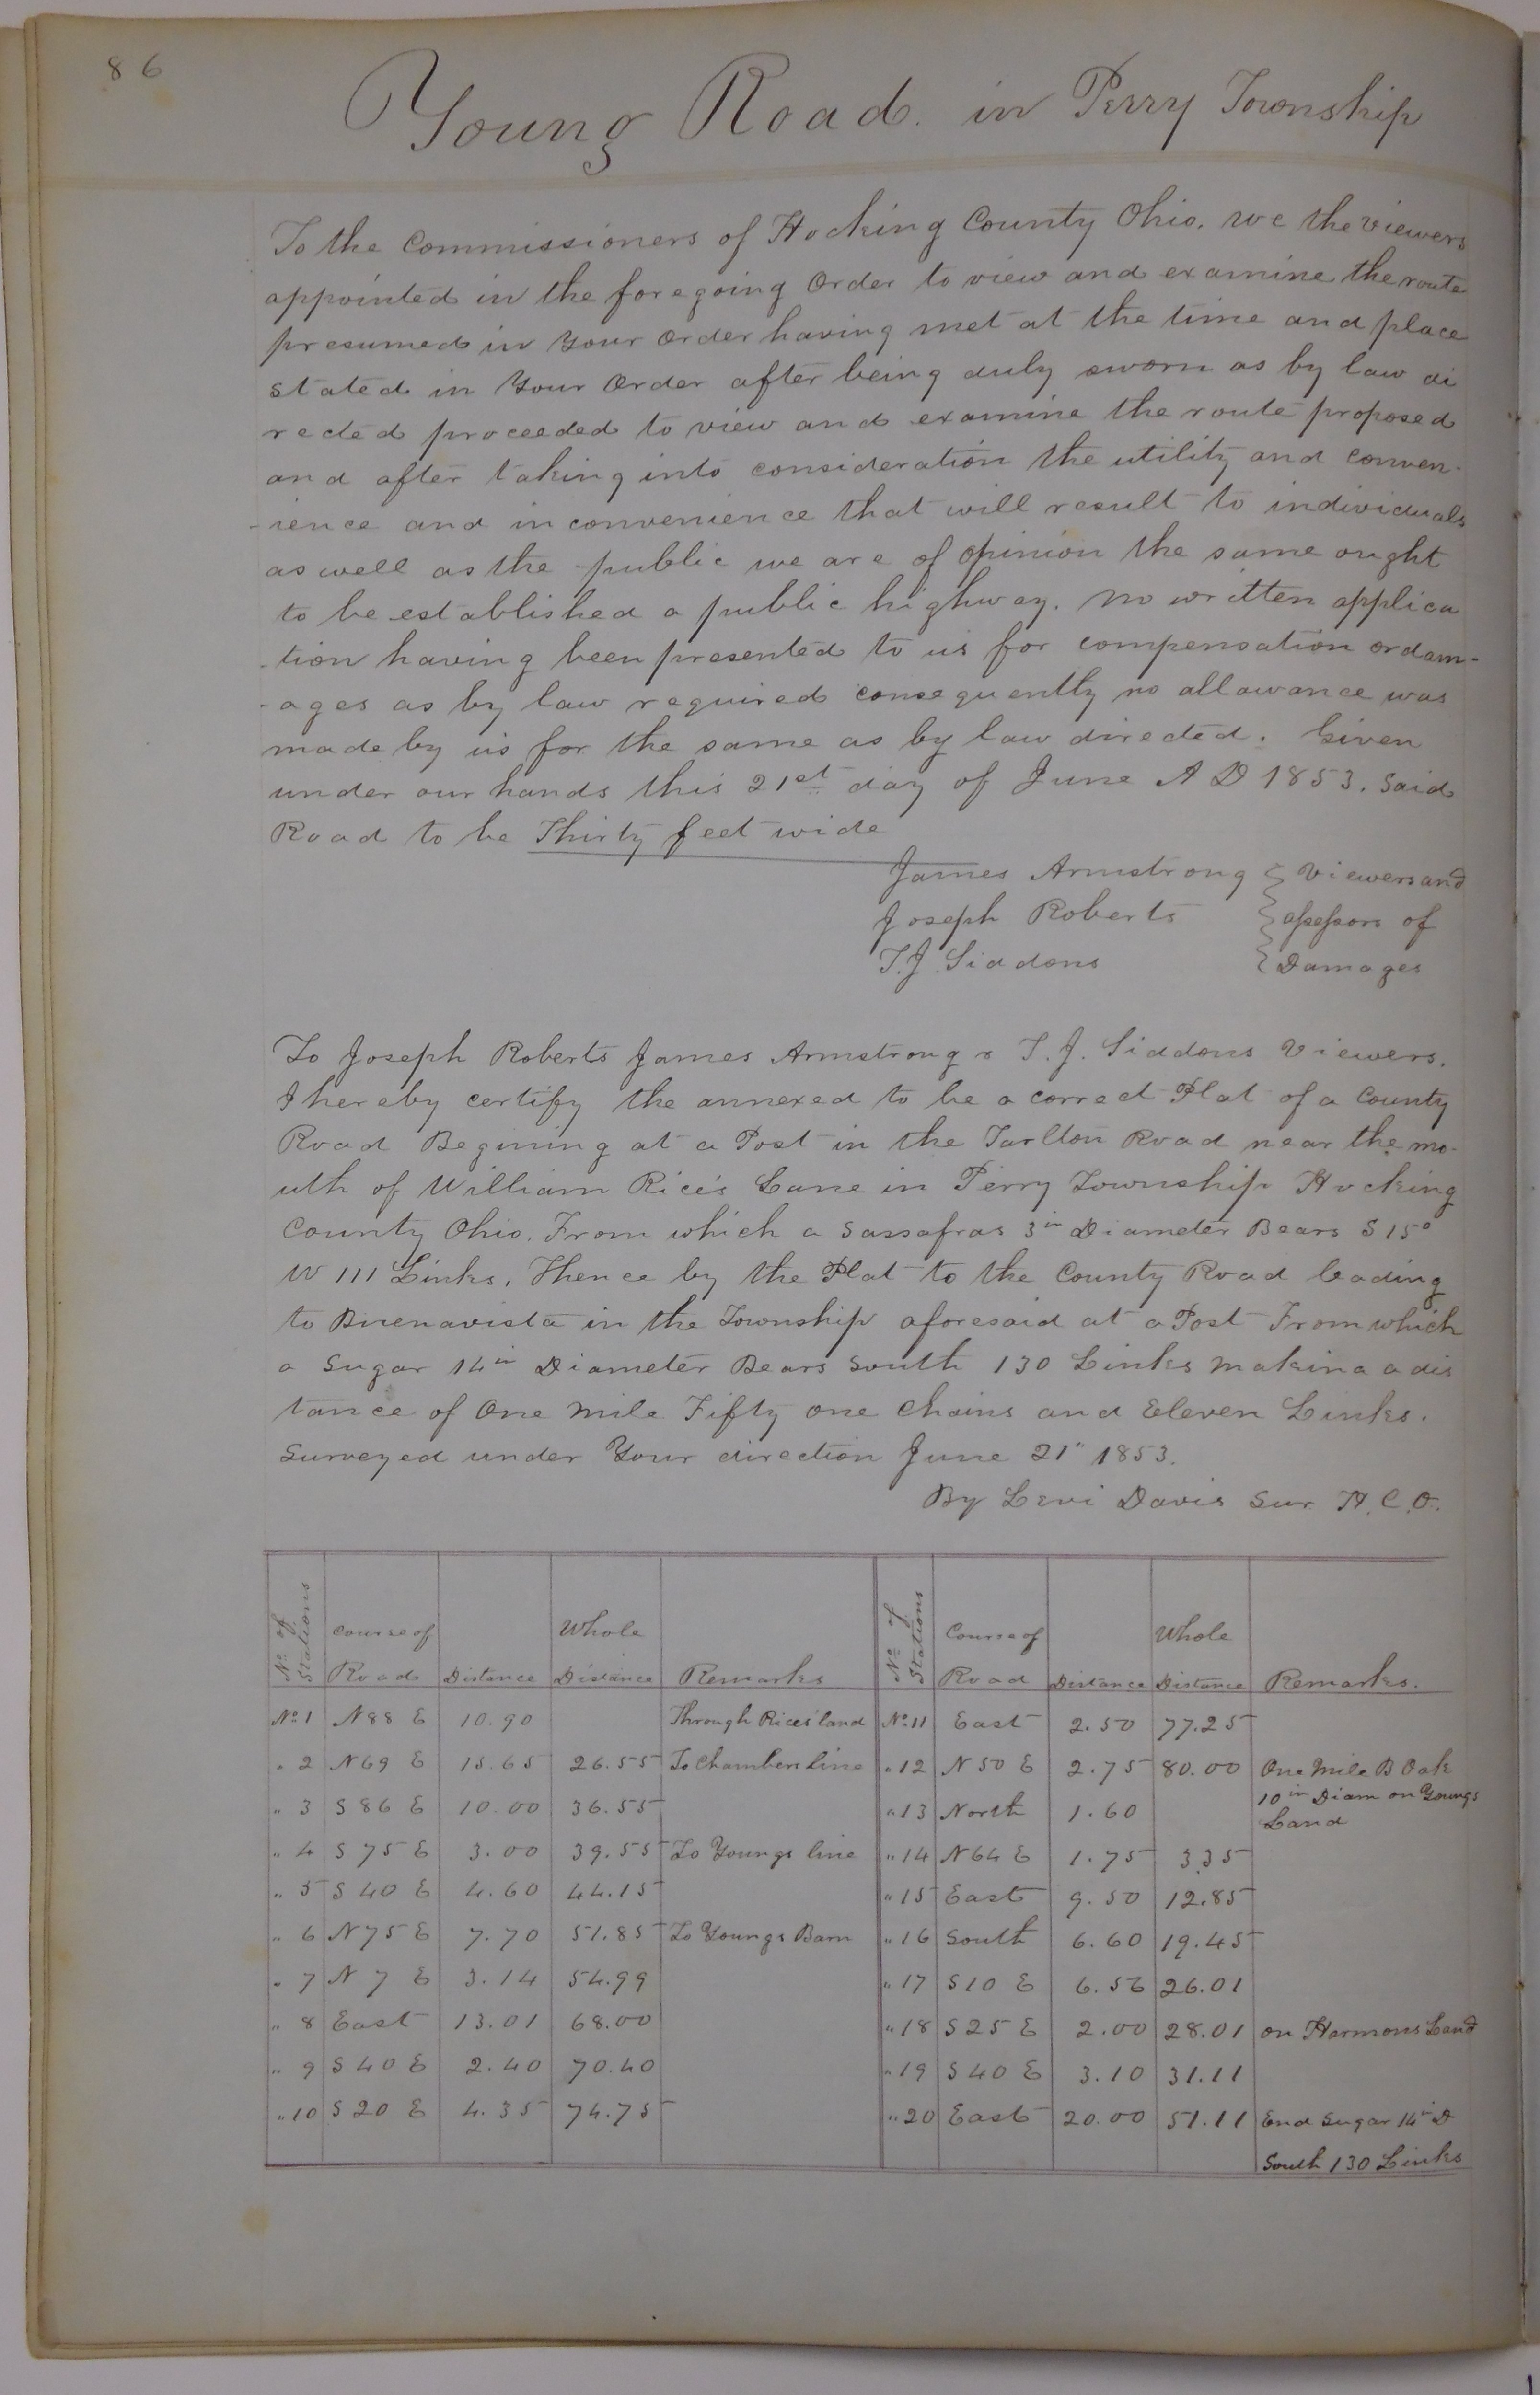 86
Young Road. in Perry Township
To the Commissioners of Hocking County Ohio. we the viewers
appointed in the foregoing Order to view and examine the route
presumed in Your Order having met at the time and place
stated in Your Order after being duly sworn as by law di
rected proceeded to view and examine the route proposed
and after taking into consideration the utility and conven-
-ience and inconvenience that will result to individuals
as well as the public we are of opinion the same ought
to be established a public highway. no written applica
-tion having been presented to us for compensation or dam-
-ages as by law required consequently no allowance was
made by us for the same as by law directed. Given
under our hands this 21st day of June A D 1853. Said
Road to be Thirty feet wide
James Armstrong } Viewers and
Joseph Roberts } assessors of
T.J. Siddons } Damages
To Joseph Roberts James Armstrong & T. J. Siddons Viewers.
I hereby certify the annexed to be a correct Plat of a County
Road Begining at a Post in the Tarlton Road near the mo-
uth of William Rice's Lane in Perry Township Hocking
County Ohio. From which a Sassafras 3 in Diameter Bears S 15°
W 111 Links. Thence by the Plat to the County Road leading
to Buenavista in the Township aforesaid at a Post From which
a Sugar 14 in Diameter Bears South 130 Links making a dis
tance of One mile Fifty one Chains and Eleven Links.
Surveyed under Your direction June 21" 1853.
By Levi Davis Sur. H.C.O.
No of Stations Course of Road Distance Whole Distance Remarks No of Stations Course of Road Distance Whole Distance Remarks.
No 1 N 88 E 10.90 Through Rices' land No 11 East 2.50 77.25
" 2 N 69 E 15.65 26.55 To Chambers line " 12 N 50 E 2.75 80.00 One Mile B Oak
10 in Diam on Youngs
Land
" 3 S 86 E 10.00 36.55 " 13 North 1.60
" 4 S 75 E 3.00 39.55 To Youngs line " 14 N 64 E 1.75 3.35
" 5 S 40 E 4.60 44.15 " 15 East 9.50 12.85
" 6 N 75 E 7.70 51.85 To Youngs Barn " 16 South 6.60 19.45
" 7 N 7 E 3.14 54.99 " 17 S 10 E 6.56 26.01
" 8 East 13.01 68.00 " 18 S 25 E 2.00 28.01 on Harmons Land
" 9 S 40 E 2.40 70.40 " 19 S 40 E 3.10 31.11
" 10 S 20 E 4.35 74.75 " 20 East 20.00 51.11 End Sugar 14 in D
South 130 Links